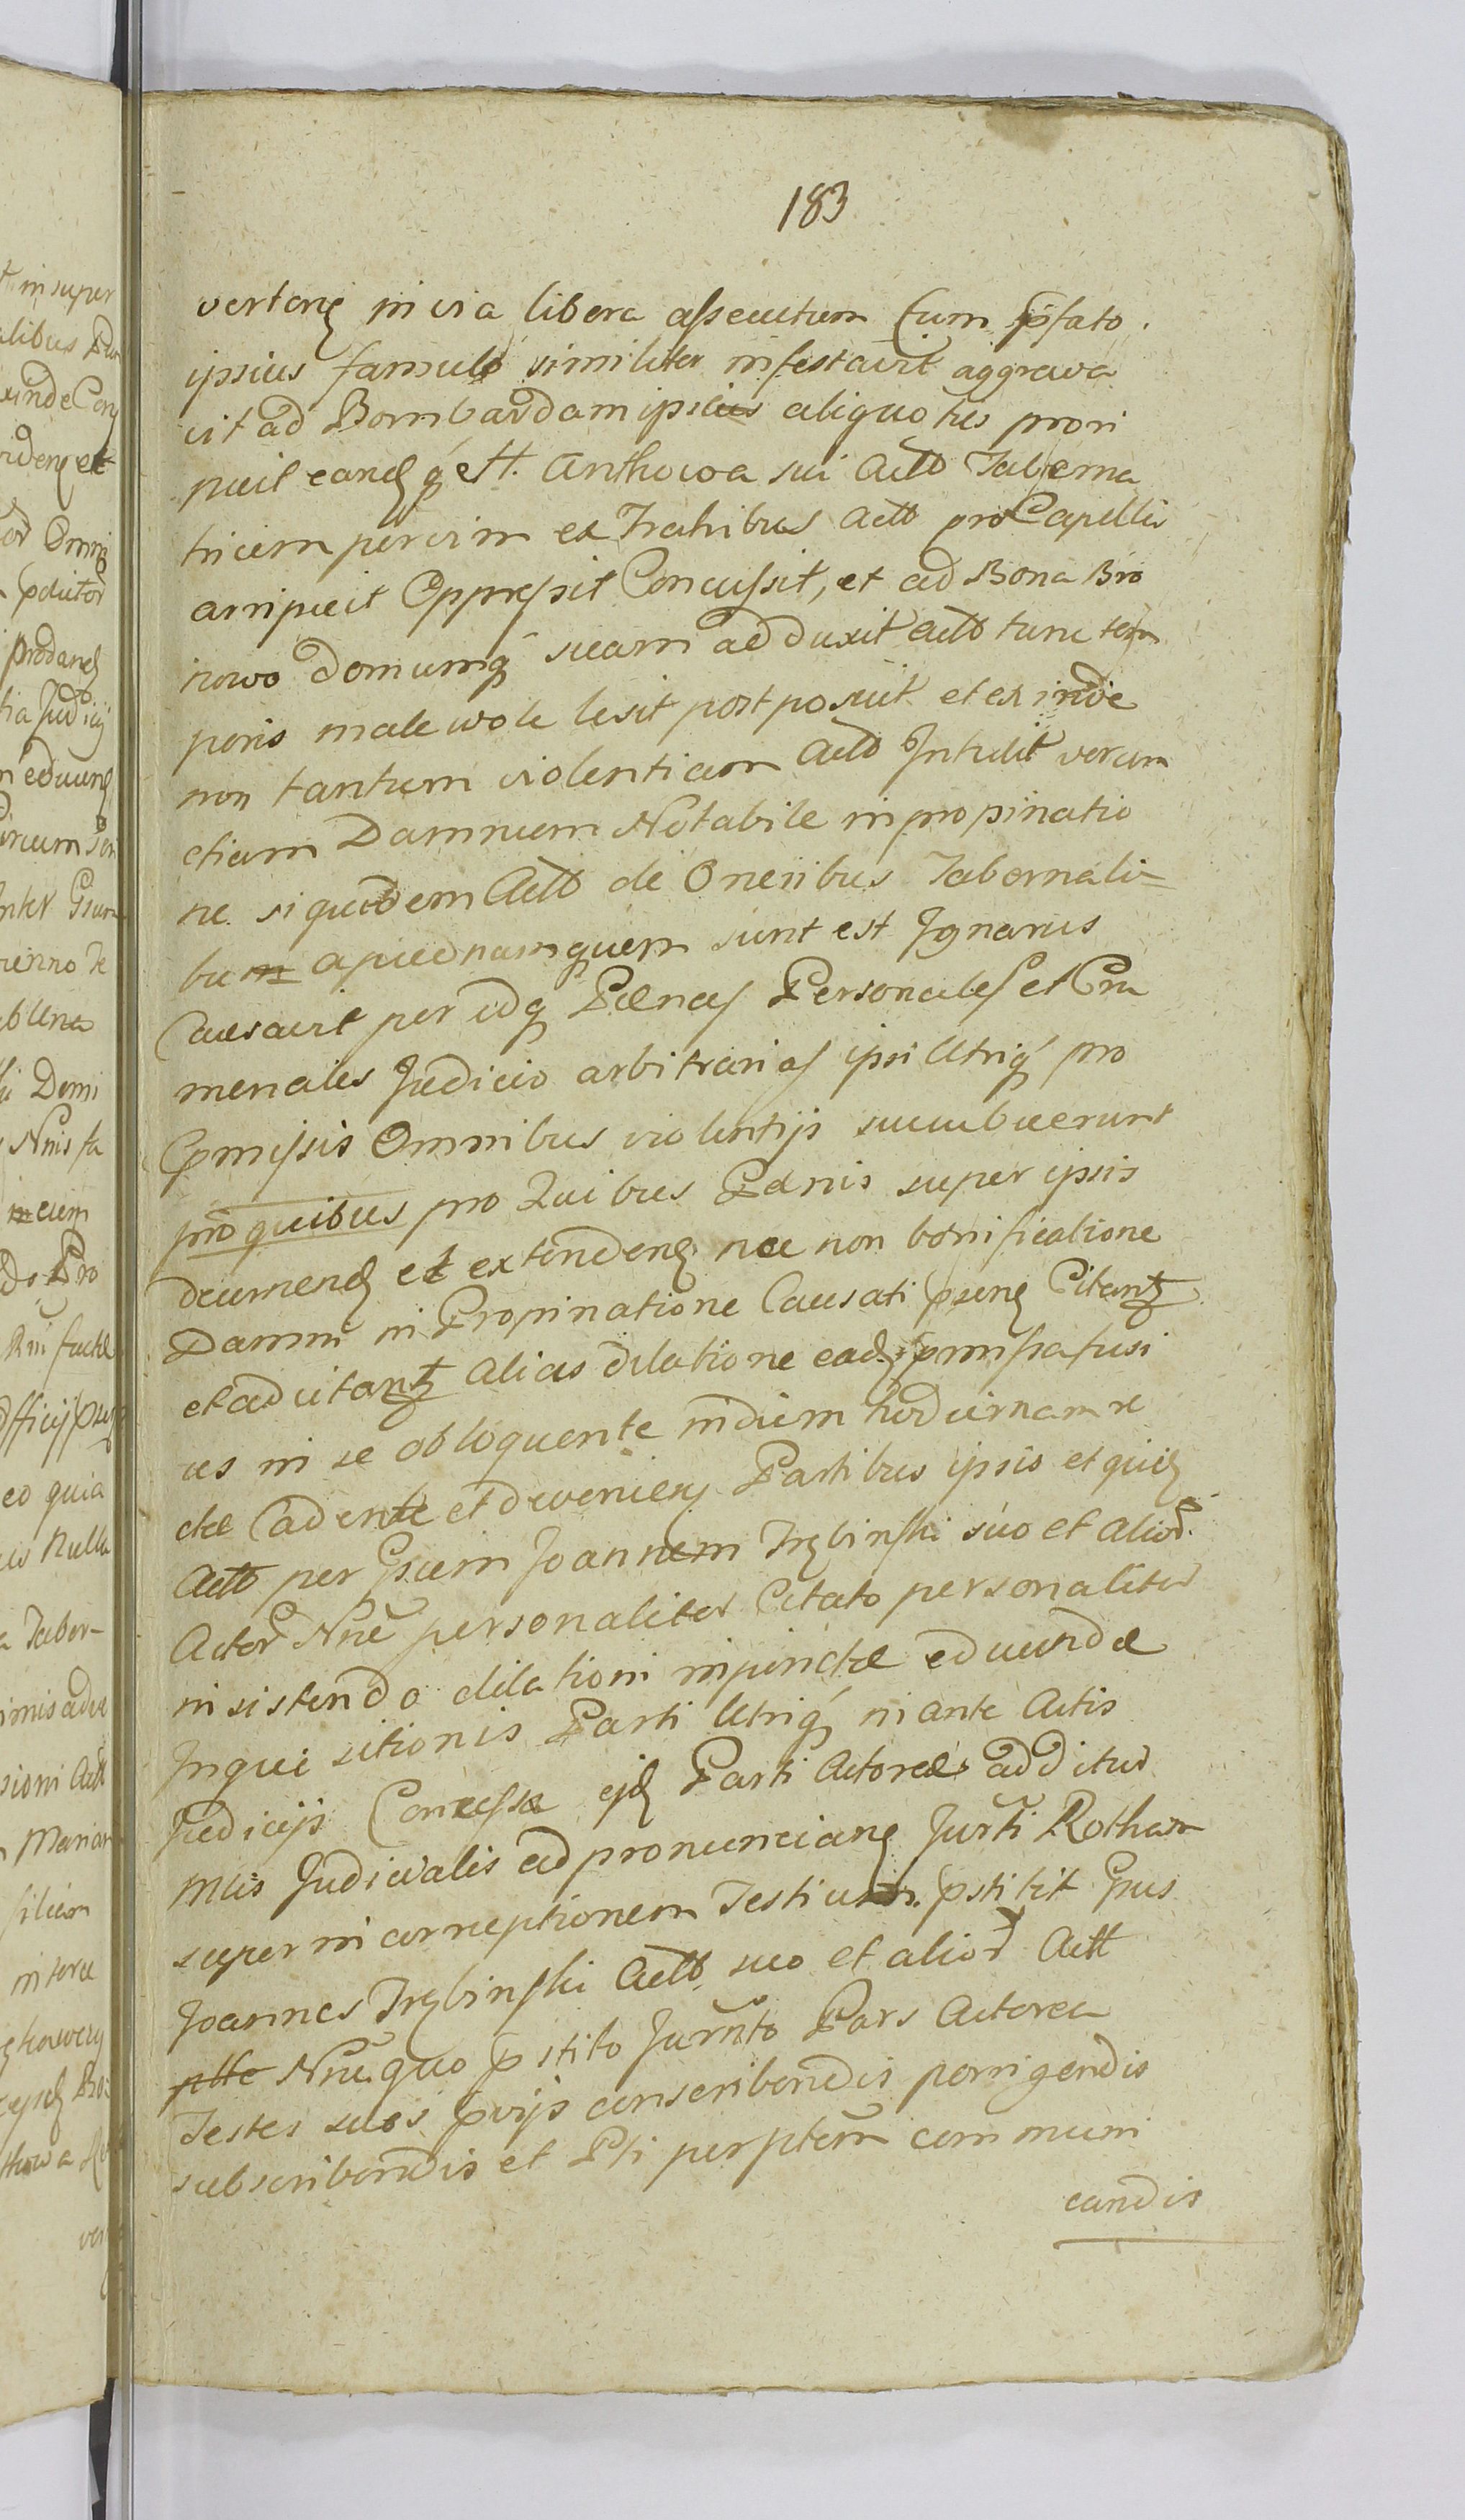 183
verteñ in via libera assecutum Cum pfato
ipsius famulo similiter infestavit aggrava
vit ad Bombardam ipsius aliquoties prori
puit eand q ett. Anthowa sui Actto Taberna
tricem per vim ex Trahibus Actto pro Capellis
arripuit Oppressit Concussit, et ad Bona Bro
nowo domumq suam adduxit Actto tunc tem
poris male vole lesit postposuit et ex inde
non tantum violentiam Actto Intulit verum
etiam Damnum Notabile in propinatio
ne siquidem Actto de Oneribus Tabernali=
bus apud namquem sunt est Ignarus
Causavit per idq Pænas Personales et Cri
menales Judicio arbitrarias ipsi Utriq pro
Cõmissis Omnibus violentijs succubuerunt
pro quibus pro Quibus Pænis super ipsis
decernend et extendend nec non bonificatione
Damni in Propinatione Causati pñne Citant
et adcitant alias dilatione ead pmissa fusi
us in se obloquente in diem hodiernam re
cte Cadente et deveniente Partibus ipsis et quid
Actt per Gsum Joannem Trębinski suo et alior
Actor Nñe personaliter Citato personaliter
insistendo dilationi injunctæ educundæ
Inquisitionis Parti Utriq in ante Actis
Judicijs Concessæ ejd Parti Actoreæ additur
mus Judicialis ad pronunciand Jurti Rotham
super incorruptionem Testium pstitit Gsus
Joannes Trębinski Actto suo et alior Actt
Nñe quo pstito Jurmto Pars Actorea
Testes suos pvijs conscribendis porrigendis
subscribendis et Pti per ptem communi
candis